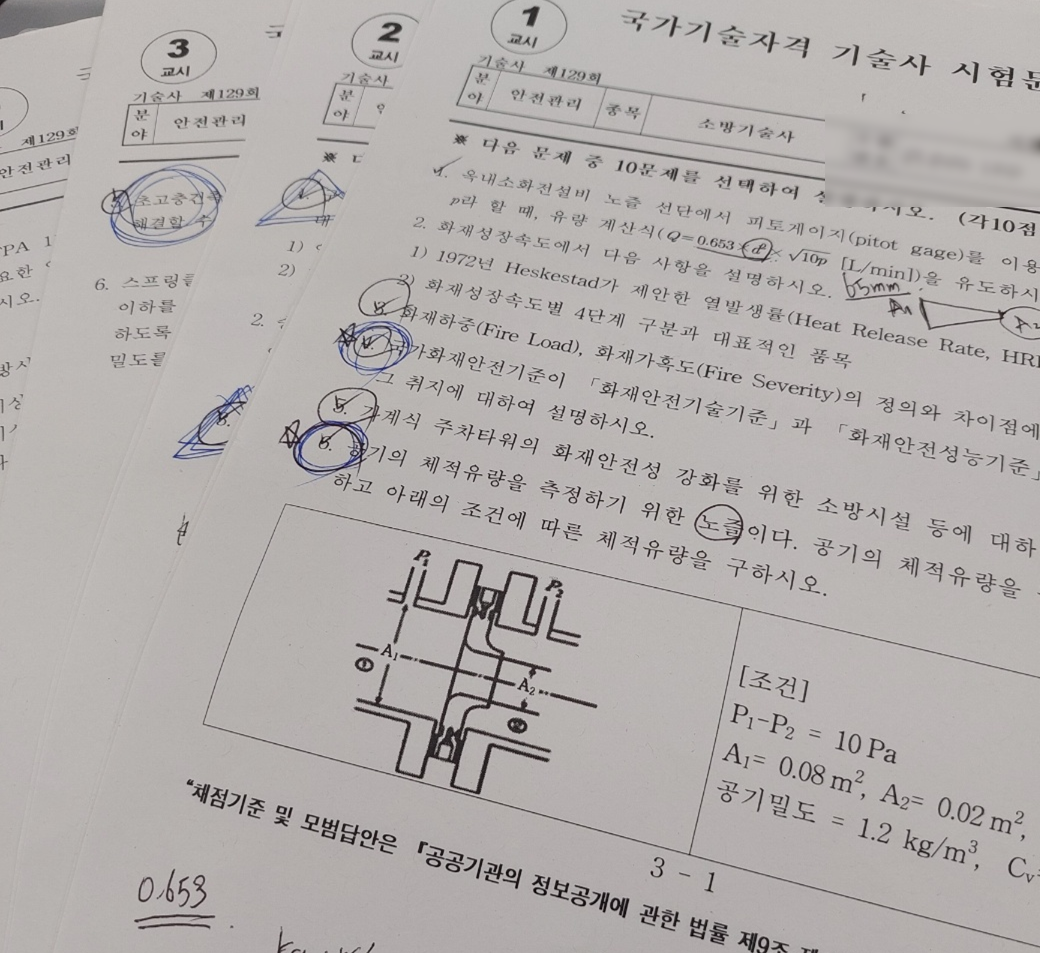 3
교시
기술사 제129회
분야 안전관리
제129회
안전관리
초고층건축
해결할 수
6. 스프링클
이하를
하도록
밀도를
2
교시
기술사
분야
1)
2)
2.
1
교시
국가기술자격 기술사 시험문
기술사 제129회
분야 안전관리 종목 소방기술사
※ 다음 문제 중 10문제를 선택하여 (각10점
1. 옥내소화전설비 노즐 선단에서 피토게이지(pitot gage)를 이용
p라 할 때, 유량 계산식(Q=0.653×d²×√10p [L/min])을 유도하시
2. 화재성장속도에서 다음 사항을 설명하시오.
65mm
A₁
A₂
1) 1972년 Heskestad가 제안한 열발생률(Heat Release Rate, HRR
2) 화재성장속도별 4단계 구분과 대표적인 품목
3. 화재하중(Fire Load), 화재가혹도(Fire Severity)의 정의와 차이점에
4. 국가화재안전기준이 「화재안전기술기준」과 「화재안전성능기준」
그 취지에 대하여 설명하시오.
5. 기계식 주차타워의 화재안전성 강화를 위한 소방시설 등에 대하
6. 공기의 체적유량을 측정하기 위한 노즐이다. 공기의 체적유량을
하고 아래의 조건에 따른 체적유량을 구하시오.
P₁
P₂
A₁
①
A₂
②
[조건]
P₁-P₂ = 10 Pa
A₁= 0.08 m², A₂= 0.02 m²,
공기밀도 = 1.2 kg/m³, Cv
3 - 1
"채점기준 및 모범답안은 「공공기관의 정보공개에 관한 법률 제9조
0.653